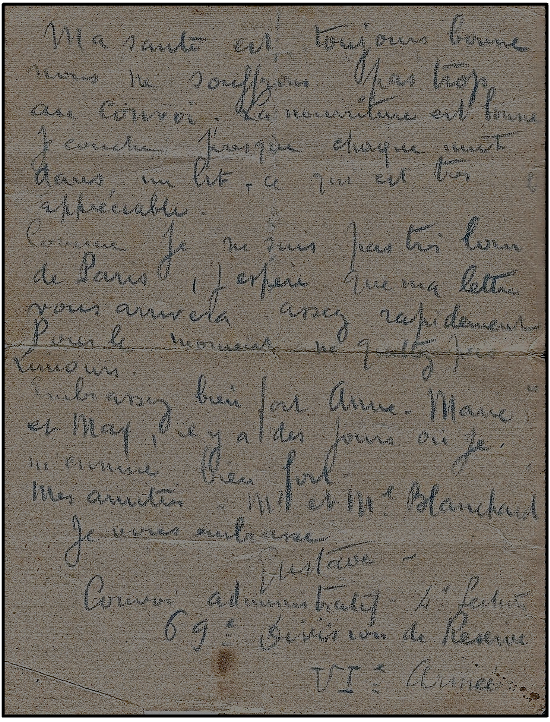 Ma santé est toujours bonne
nous ne souffrons pas trop
au convoi. La nourriture est bonne
Je couche presque chaque nuit
dans un lit, ce qui est très
appréciable.
Comme je ne suis pas très loin
de Paris, j'espère que ma lettre
vous arrivera assez rapidement
Pour le moment ne quittez pas
Limours.
Embrassez bien fort Anne-Marie
et May, il y a des jours où je
m'ennuie bien fort.
Mes amitiés Mr et Me Blanchard
Je vous embrasse
Gustave
Convoi administratif 4e
69e Division de Réserve
VIe Armée